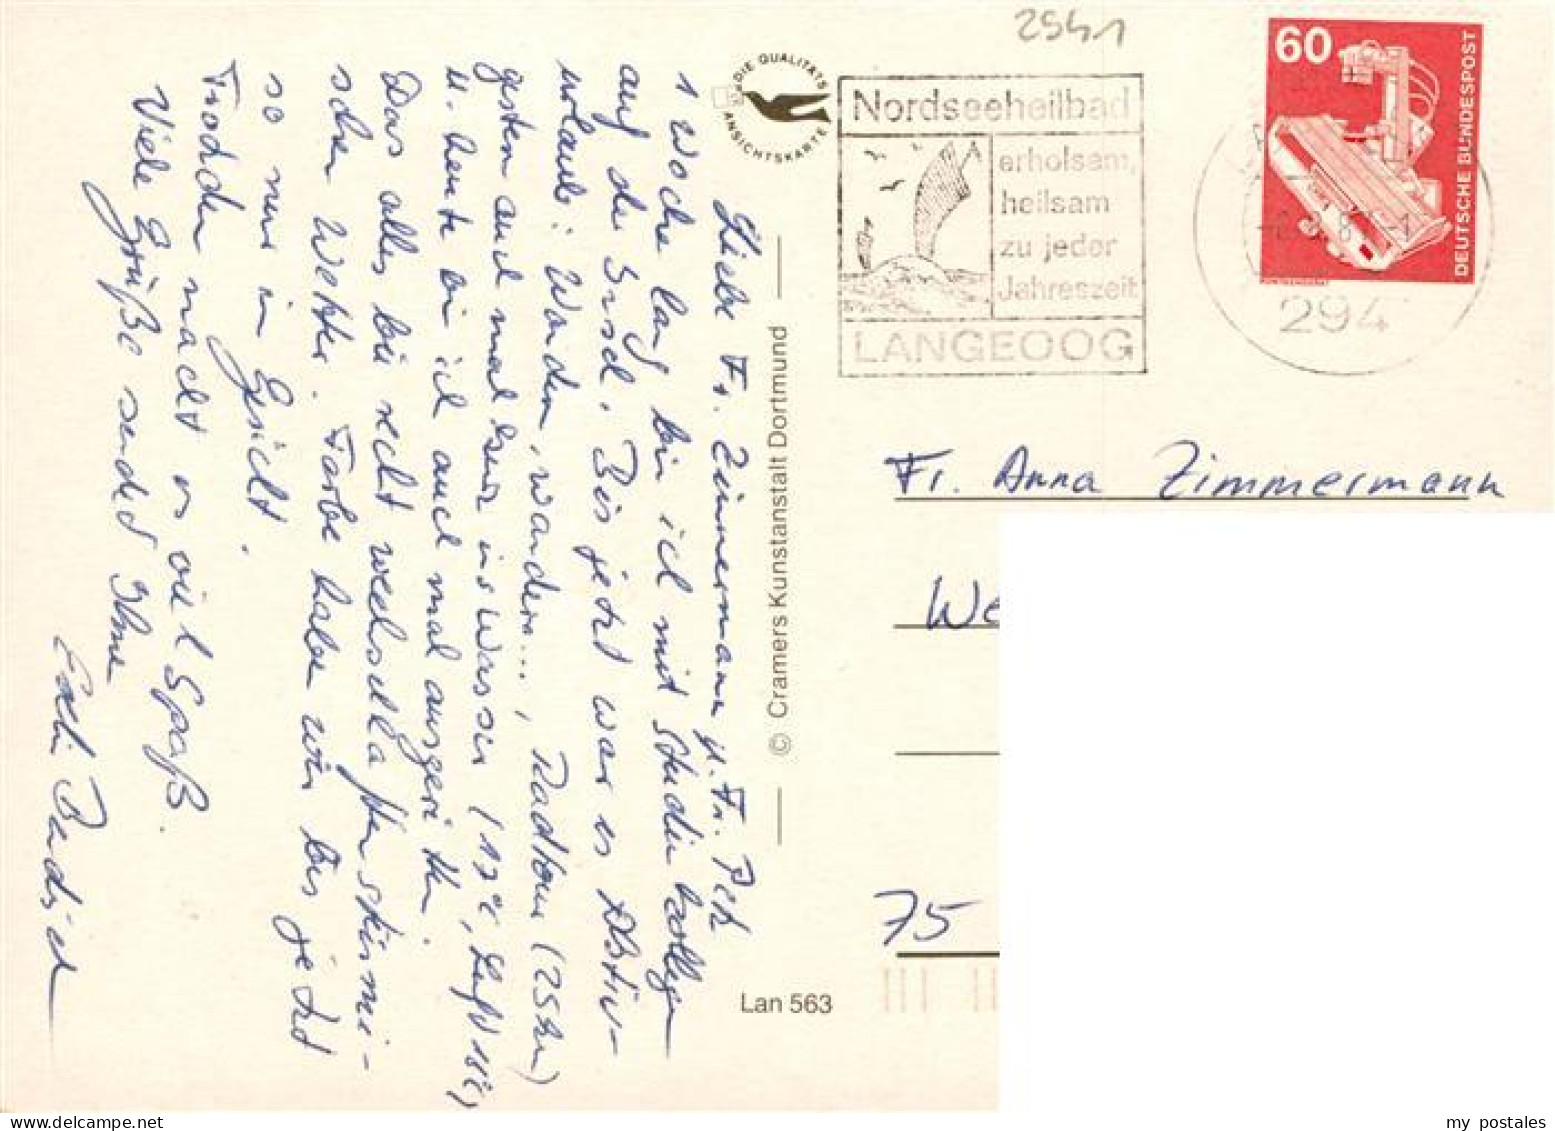 2541
DIE QUALITÄTS
ANSICHTSKARTE
Nordseeheilbad
erholsam,
heilsam
zu jeder
Jahreszeit
LANGEOOG
60
DEUTSCHE BUNDESPOST
294
Liebe Fr. Zimmermann u. Fr.
1 Woche lang bin ich mit Studienkollegen
auf der Insel. Bis jetzt war es Aktiv-
urlaub: Wandern, wandern..., Radtour (25km)
gestern auch mal kurz ins Wasser (17°C, Luft 18°C)
u. heute bin ich auch mal ausgeritten.
Das alles bei recht wechselhaftem stürmi-
schen Wetter. Farbe haben wir bis jetzt
so nur im Gesicht.
Trotzdem macht es viel Spaß.
Viele Grüße sendet Ihnen
© Cramers Kunstanstalt Dortmund
Lan 563
Fr. Anna Zimmermann
We
75
my postales
www.delcampe.net